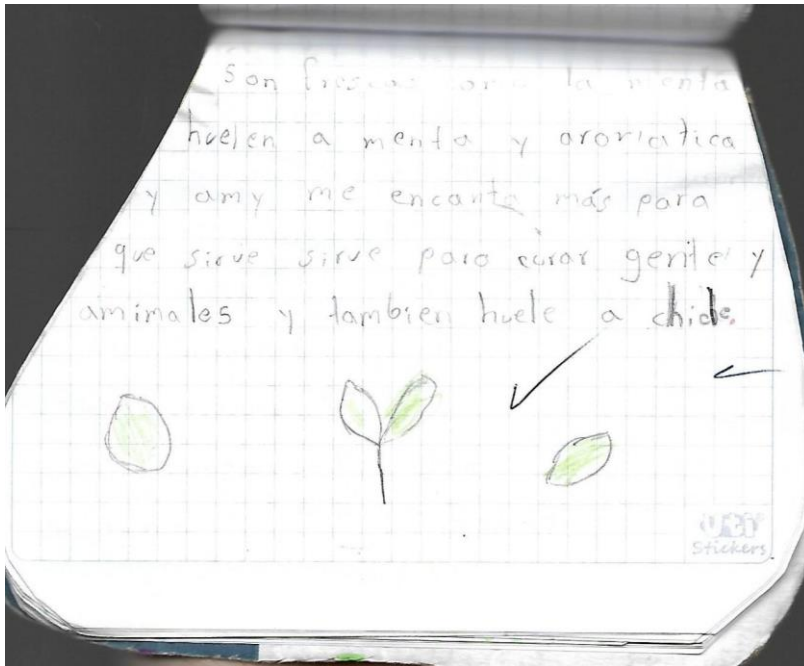 Son frescas la menta
huelen a menta y aromatica
y amy me encanta más para
que sirve sirve para curar gente y
amimales y tambien huele a chicle.
Stickers